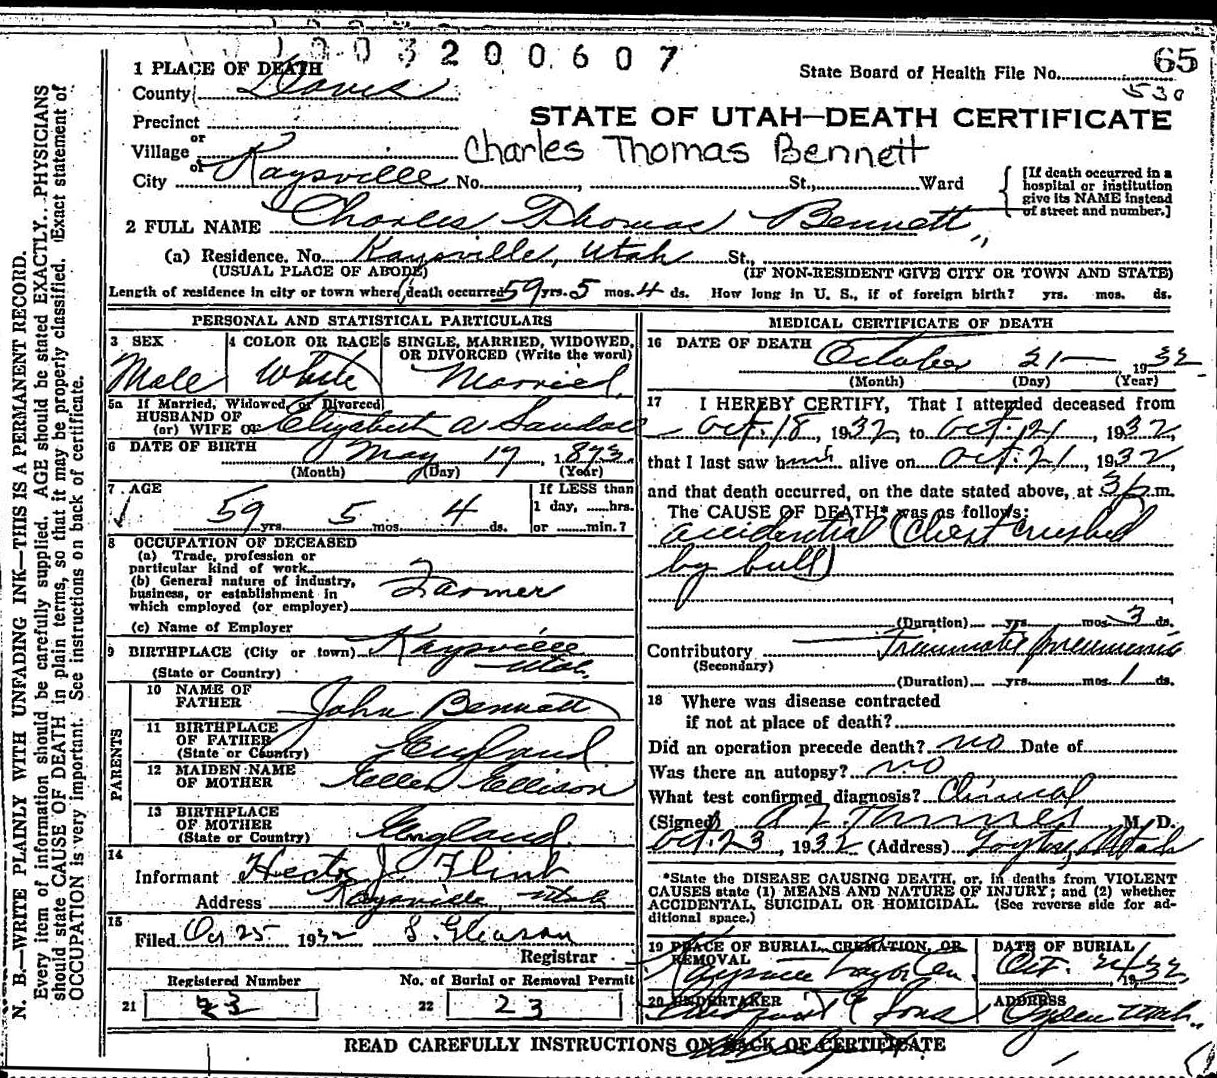 1003200607
65
1 PLACE OF DEATH
State Board of Health File No.
530
County Davis
STATE OF UTAH—DEATH CERTIFICATE
Precinct
or
Village
Charles Thomas Bennett
or
City Kaysville No. , St., Ward
[If death occurred in a
hospital or institution
give its NAME instead
of street and number.]
2 FULL NAME Charles Thomas Bennett
(a) Residence. No. Kaysville, Utah St.,
(USUAL PLACE OF ABODE) (IF NON-RESIDENT GIVE CITY OR TOWN AND STATE)
Length of residence in city or town where death occurred 59 yrs. 5 mos. 4 ds. How long in U. S., if of foreign birth? yrs. mos. ds.
PERSONAL AND STATISTICAL PARTICULARS
3 SEX
Male
4 COLOR OR RACE
White
5 SINGLE, MARRIED, WIDOWED,
OR DIVORCED (Write the word)
Married
5a If Married, Widowed, or Divorced
HUSBAND OF
(or) WIFE OF Elizabeth A
6 DATE OF BIRTH
May 17, 1873
(Month) (Day) (Year)
7 AGE
59 yrs. 5 mos. 4 ds.
If LESS than
1 day, ......hrs.
or ......min.?
8 OCCUPATION OF DECEASED
(a) Trade, profession or
particular kind of work
(b) General nature of industry,
business, or establishment in
which employed (or employer)
Farmer
(c) Name of Employer
9 BIRTHPLACE (City or town) Kaysville
Utah.
(State or Country)
PARENTS
10 NAME OF
FATHER John Bennett
11 BIRTHPLACE
OF FATHER England.
(State or Country)
12 MAIDEN NAME
OF MOTHER Ellen Ellison
13 BIRTHPLACE
OF MOTHER England.
(State or Country)
14
Informant J. Flint
Address Kaysville, Utah
15
Filed Oct 25 1932 S. Gleason
Registrar
Registered Number
21 23
No. of Burial or Removal Permit
22 23
MEDICAL CERTIFICATE OF DEATH
16 DATE OF DEATH
October 21— 1932
(Month) (Day) (Year)
17 I HEREBY CERTIFY, That I attended deceased from
Oct. 18, 1932, to Oct. 21, 1932,
that I last saw him alive on Oct. 21, 1932,
and that death occurred, on the date stated above, at 3 p. m.
The CAUSE OF DEATH* was as follows:
accidential (Chest crushed
by bull)
(Duration) yrs. mos. 3 ds.
Contributory Traumatic pneumonia
(Secondary)
(Duration) yrs. mos. 1 ds.
18 Where was disease contracted
if not at place of death?
Did an operation precede death? no Date of
Was there an autopsy? no
What test confirmed diagnosis? Clinical
(Signed) M. D.
Oct. 23, 1932 (Address) Layton, Utah
*State the DISEASE CAUSING DEATH, or, in deaths from VIOLENT
CAUSES state (1) MEANS AND NATURE OF INJURY; and (2) whether
ACCIDENTAL, SUICIDAL OR HOMICIDAL. (See reverse side for ad-
ditional space.)
19 PLACE OF BURIAL, CREMATION, OR
REMOVAL
Kaysville Layton Cem.
DATE OF BURIAL
Oct. 24 1932
20 UNDERTAKER
& Sons
ADDRESS
Ogden Utah.
READ CAREFULLY INSTRUCTIONS ON BACK OF CERTIFICATE
N. B.—WRITE PLAINLY WITH UNFADING INK—THIS IS A PERMANENT RECORD.
Every item of information should be carefully supplied. AGE should be stated EXACTLY. PHYSICIANS
should state CAUSE OF DEATH in plain terms, so that it may be properly classified. Exact statement of
OCCUPATION is very important. See instructions on back of certificate.